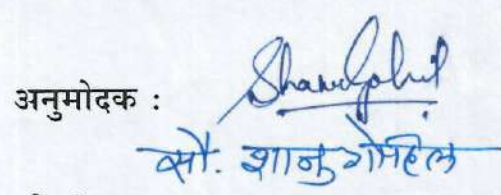 अनुमोदक : ShanuGohil
सौ. शानु गोहिल